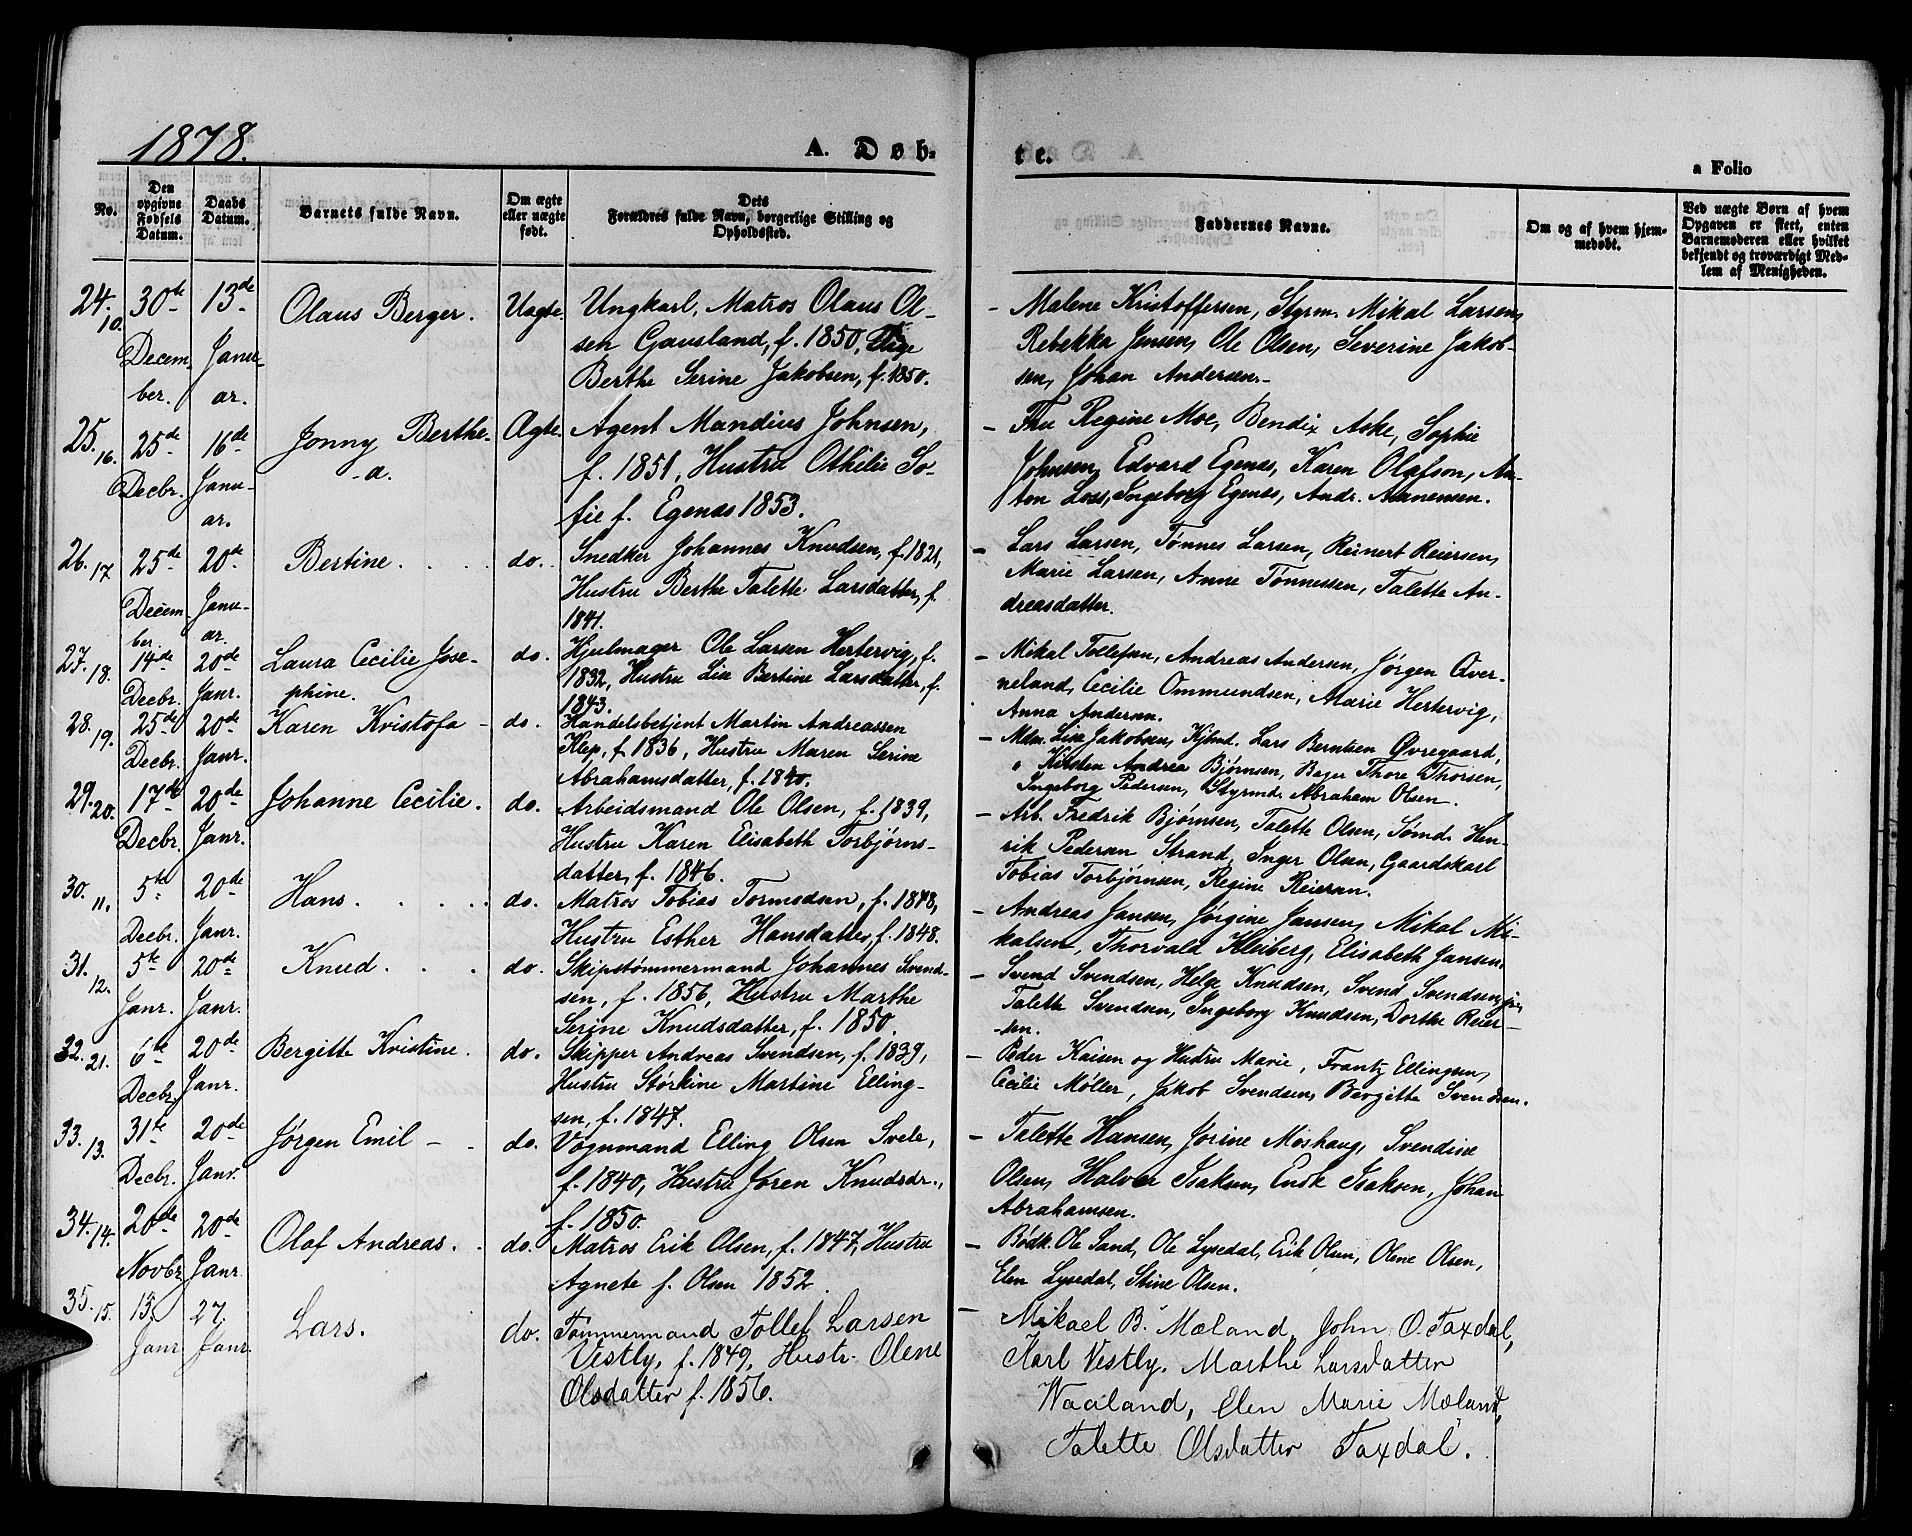 1878.
A. Døb-
te.
a Folio
No.
Den opgivne Fødsels Datum.
Daabs Datum.
Barnets fulde Navn.
Om ægte eller uægte født.
Dets Forældres fulde Navn, borgerlige Stilling og Opholdssted.
Faddernes Navne.
Om og af hvem hjemmedøbt.
Ved uægte Børn af hvem Opgaven er skeet, enten Barnemoderen eller hvilket bekjendt og troværdigt Medlem af Menigheden.
24. 10. 30de Decem ber. 13de Janu- ar. Olaus Berger. Uægte. Ungkarl, Matros Olaus Ol-
sen Gausland, f. 1850, Pige
Berthe Serine Jakobsen, f. 1850.
- Malene Kristoffersen, Styrm. Mikal Larsen,
Rebekka Jensen, Ole Olsen, Severine Jakob-
sen, Johan Andersen.
25. 16. 25de Decbr. 16de Janu- ar. Jonny Berthe-
-a. Ægte. Agent Mandius Johnsen,
f. 1851, Hustru Othilie So-
fie f. Egenæs 1853.
- Fru Regine Moe, Bendix Aske, Sophie
Johnsen, Edvard Egenæs, Karen Olafson, An-
ton Loss, Ingeborg Egenæs, Andr. Aanensen.
26. 17 25de Decem ber. 20de Janu- ar. Bertine. do. Snedker Johannes Knudsen, f. 1821,
Hustru Berthe Talette Larsdatter, f.
1841.
- Lars Larsen, Tønnes Larsen, Reinert Reiersen,
Marie Larsen, Anne Tønnessen, Talette An-
dreasdatter.
27. 18. 14de Decbr. 20de Janr. Laura Cecilie Jose-
phine. do. Hjulmager Ole Larsen Hertervig, f.
1832, Hustru Lise Bertine Larsdatter, f.
1843.
- Mikal Tollefsen, Andreas Andersen, Jørgen Qver-
neland, Cecilie Ommundsen, Marie Hertervig,
Anna Andersen.
28. 19. 25de Decbr. 20de Janr. Karen Kristofa - do. Handelsbetjent Martin Andreassen
Klep, f. 1836, Hustru Maren Serine
Abrahamsdatter, f. 1840.
- Mdm. Lise Jakobsen, Kjbmd. Lars Berntsen Øvregaard,
" Kirsten Andrea Bjørnsen, Bager Thore Thorsen,
Ingeborg Pedersen, Styrmd. Abraham Olsen.
29. 20. 17de Decbr. 20de Janr. Johanne Cecilie. do. Arbeidsmand Ole Olsen, f. 1839,
Hustru Karen Elisabeth Torbjørns-
datter, f. 1846.
- Arb. Fredrik Bjørnsen, Talette Olsen, Sømd. Hen-
rik Pedersen Strand, Inger Olsen, Gaardskarl
Tobias Torbjørnsen, Regine Reiersen.
30. 11. 5te Decbr. 20de Janr. Hans. do. Matros Tobias Tormodsen, f. 1848,
Hustru Esther Hansdatter, f. 1848.
- Andreas Jansen, Jørgine Jansen, Mikal Mi-
kalsen, Thorvald Kleiberg, Elisabeth Jansen.
31. 12. 5te Janr. 20de Janr. Knud. do. Skipstømmermand Johannes Svend-
sen, f. 1856, Hustru Marthe
Serine Knudsdatter, f. 1850.
- Svend Svendsen, Helge Knudsen, Svend Svendsen jr.,
Talette Svendsen, Ingeborg Knudsen, Dorthe Reier-
-sen.
32. 21. 6te Decbr. 20de Janr. Bergitte Kristine. do. Skipper Andreas Svendsen, f. 1839,
Hustru Størkine Martine Elling-
sen, f. 1847.
- Peder Kaisen og Hustru Marie, Frantz Ellingsen,
Cecilie Møller, Jakob Svendsen, Bergitte Svendsen.
33. 13. 31te Decbr. 20de Janr. Jørgen Emil - do. Vognmand Elling Olsen Svele,
f. 1840, Hustru Joren Knudsdr.,
f. 1850.
- Talette Hansen, Jorine Moshaug, Svendine
Olsen, Halvor Isaksen, Endr. Isaksen, Johan
Abrahamsen.
34. 14. 20de Novbr. 20de Janr. Olaf Andreas. do. Matros Erik Olsen, f. 1847, Hustru
Agnete f. Olsen 1852.
- Bødk. Ole Sand, Ole Lysedal, Erik Olsen, Olene Olsen,
Elen Lysedal, Stine Olsen.
35. 15. 13. Janr 27. Janr. Lars. do. Tømmermand Tollef Larsen
Vestly, f. 1849, Hustr. Olene
Olsdatter f. 1856.
- Mikael B. Mæland, John O. Taxdal,
Karl Vestly. Marthe Larsdatter
Waaland, Elen Marie Mæland,
Talette Olsdatter Taxdal.